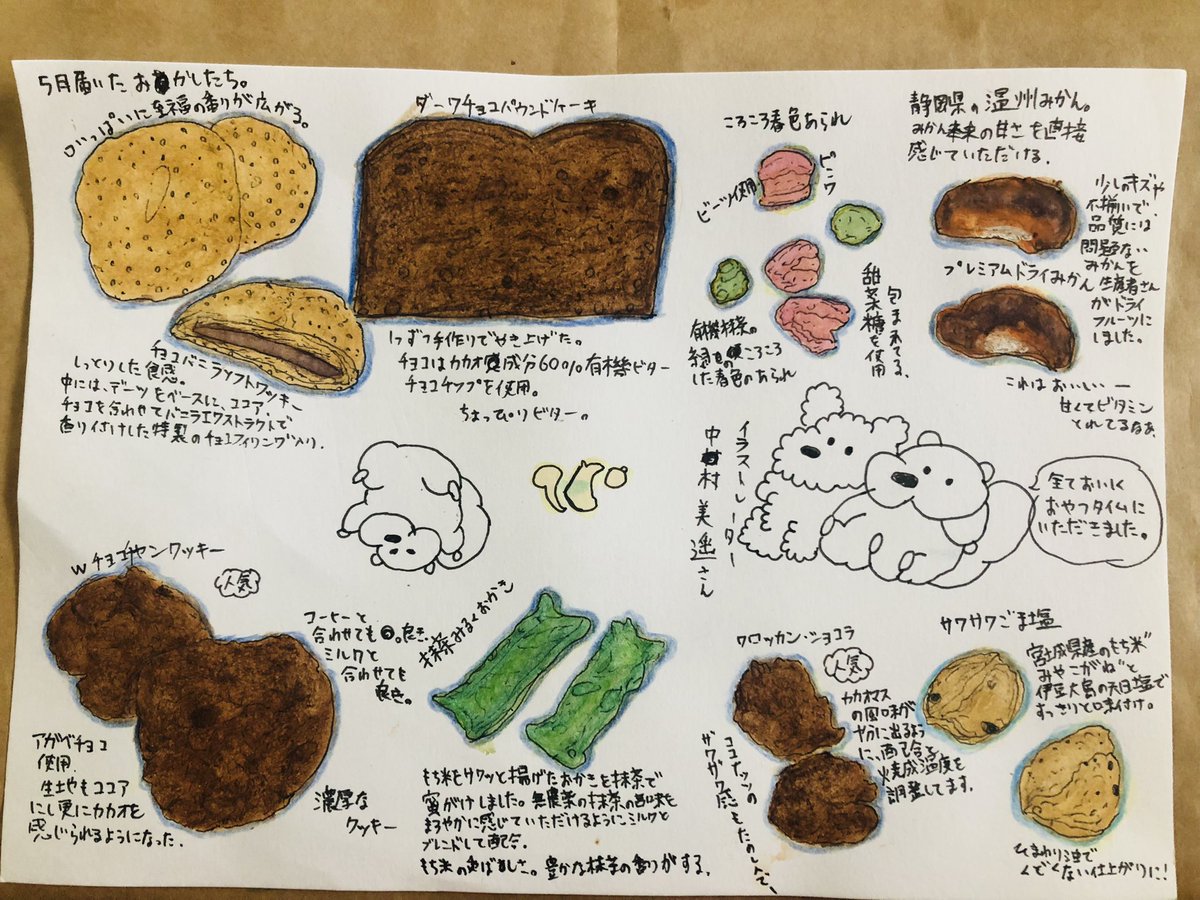 5月届いたおかしたち。
口いっぱいに至福の香りが広がる。
チョコバニラソフトクッキー
しっとりした食感。
中には、デーツをベースに、ココア、
チョコを合わせてバニラエクストラクトで
香り付けした特製のチョコフィリング入り。
ダークチョコパウンドケーキ
1つずつ手作りでやき上げた。
チョコはカカオ成分60%有機ビター
チョコチップを使用。
ちょっぴりビター。
ころころ春色あられ
ピンク
ビーツ使用
有機抹茶の
緑の
ころころ
した春色のあられ
甜菜糖を使用
包まれてる。
静岡県の温州みかん。
みかん本来の甘さを直接
感じていただける。
プレミアムドライみかん
少しのキズや
不揃いで、
品質には
問題ない
みかんを
生産者さん
がドライ
フルーツに
しました。
これはおいしいー
甘くてビタミン
とれてるなぁ。
イラストレーター
中村美遥さん
全ておいしく
おやつタイムに
いただきました。
Wチョコチャンククッキー
人気
アガベチョコ
使用
生地もココア
にし更にカカオを
感じられるようになった。
濃厚な
クッキー
コーヒーと
合わせても
良き。
ミルクと
合わせても
良き。
抹茶みるくおかき
もち米をサクッと揚げたおかきを抹茶で
蜜がけしました。無農薬の抹茶の旨味を
まろやかに感じていただけるようにミルクと
ブレンドして配合。
もち米の香ばしさ。豊かな抹茶の香りがする。
クロッカン・ショコラ
人気
カカオマス
の風味が
に、配合と
焼成温度を
調整してます。
ココナッツの
ザクザク感
サクサクごま塩
宮城県産のもち米
"みやこがね"と
伊豆大島の天日塩で
すっきりと味付け。
ひまわり油で
くどくない仕上がりに!